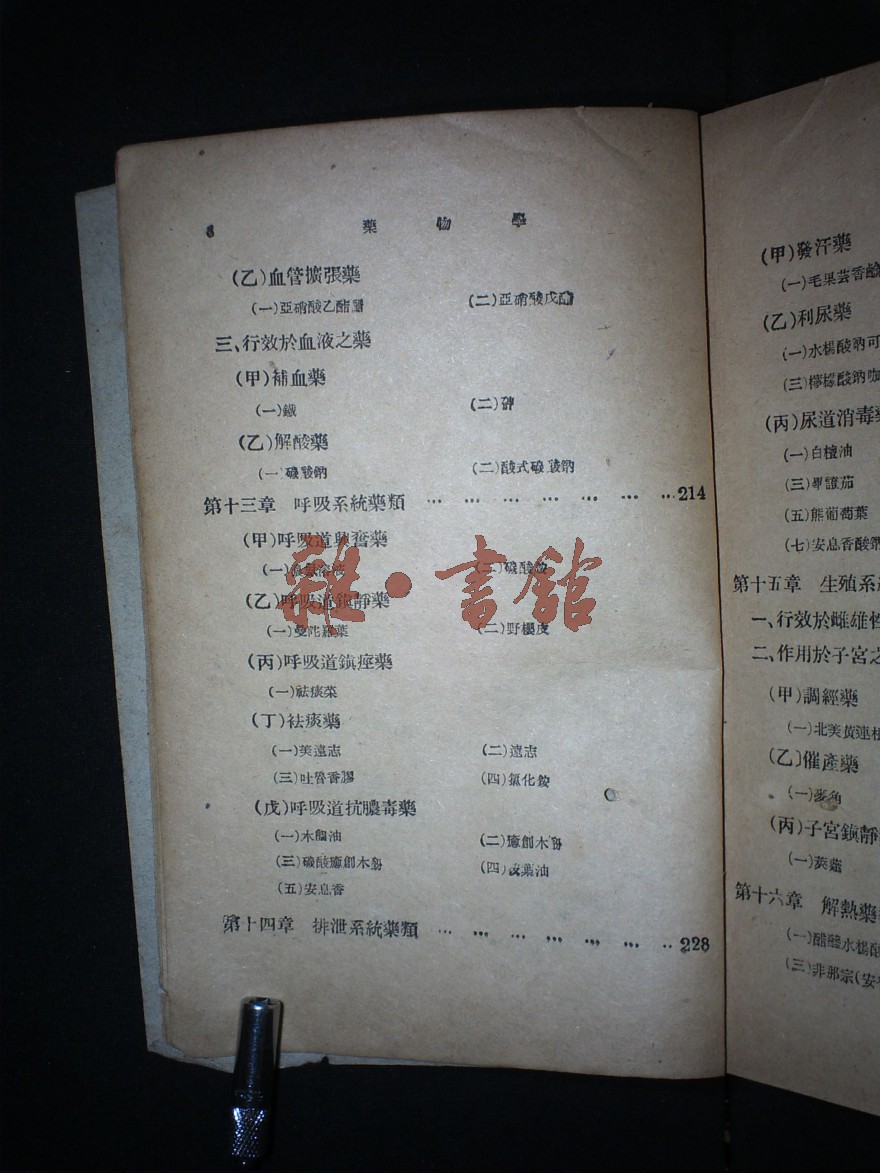 8 藥物學
(乙)血管擴張藥
(一)亞硝酸乙酯 (二)亞硝酸戊酯
三、行效於血液之藥
(甲)補血藥
(一)鐵 (二)砷
(乙)解酸藥
(一)磷酸鈉 (二)酸式磷酸鈉
第十三章 呼吸系統藥類 … … … … … … …214
(甲)呼吸道興奮藥
(一) (二)碳酸
(乙)呼吸道鎮靜藥
(一)曼陀羅葉 (二)野櫻皮
(丙)呼吸道鎮痙藥
(一)祛痰菜
(丁)袪痰藥
(一)美遠志 (二)遠志
(三)吐魯香膠 (四)氯化銨
(戊)呼吸道抗膿毒藥
(一)木餾油 (二)癒創木酚
(三)碳酸癒創木酚 (四)桉葉油
(五)安息香
第十四章 排泄系統藥類 … … … … … … ‥228
雜·書館
(甲)發汗藥
(一)毛果芸香鹼
(乙)利尿藥
(一)水楊酸鈉可
(三)檸檬酸鈉咖
(丙)尿道消毒藥
(一)白檀油
(三)蓽證茄
(五)熊葡萄葉
(七)安息香酸鈉
第十五章 生殖系
一、行效於雌雄性
二、作用於子宮之
(甲)調經藥
(一)北美黃連根
(乙)催產藥
(一)麥角
(丙)子宮鎮靜
(一)莢蒾
第十六章 解熱藥
(一)醋醯水楊酸
(三)非那宗(安